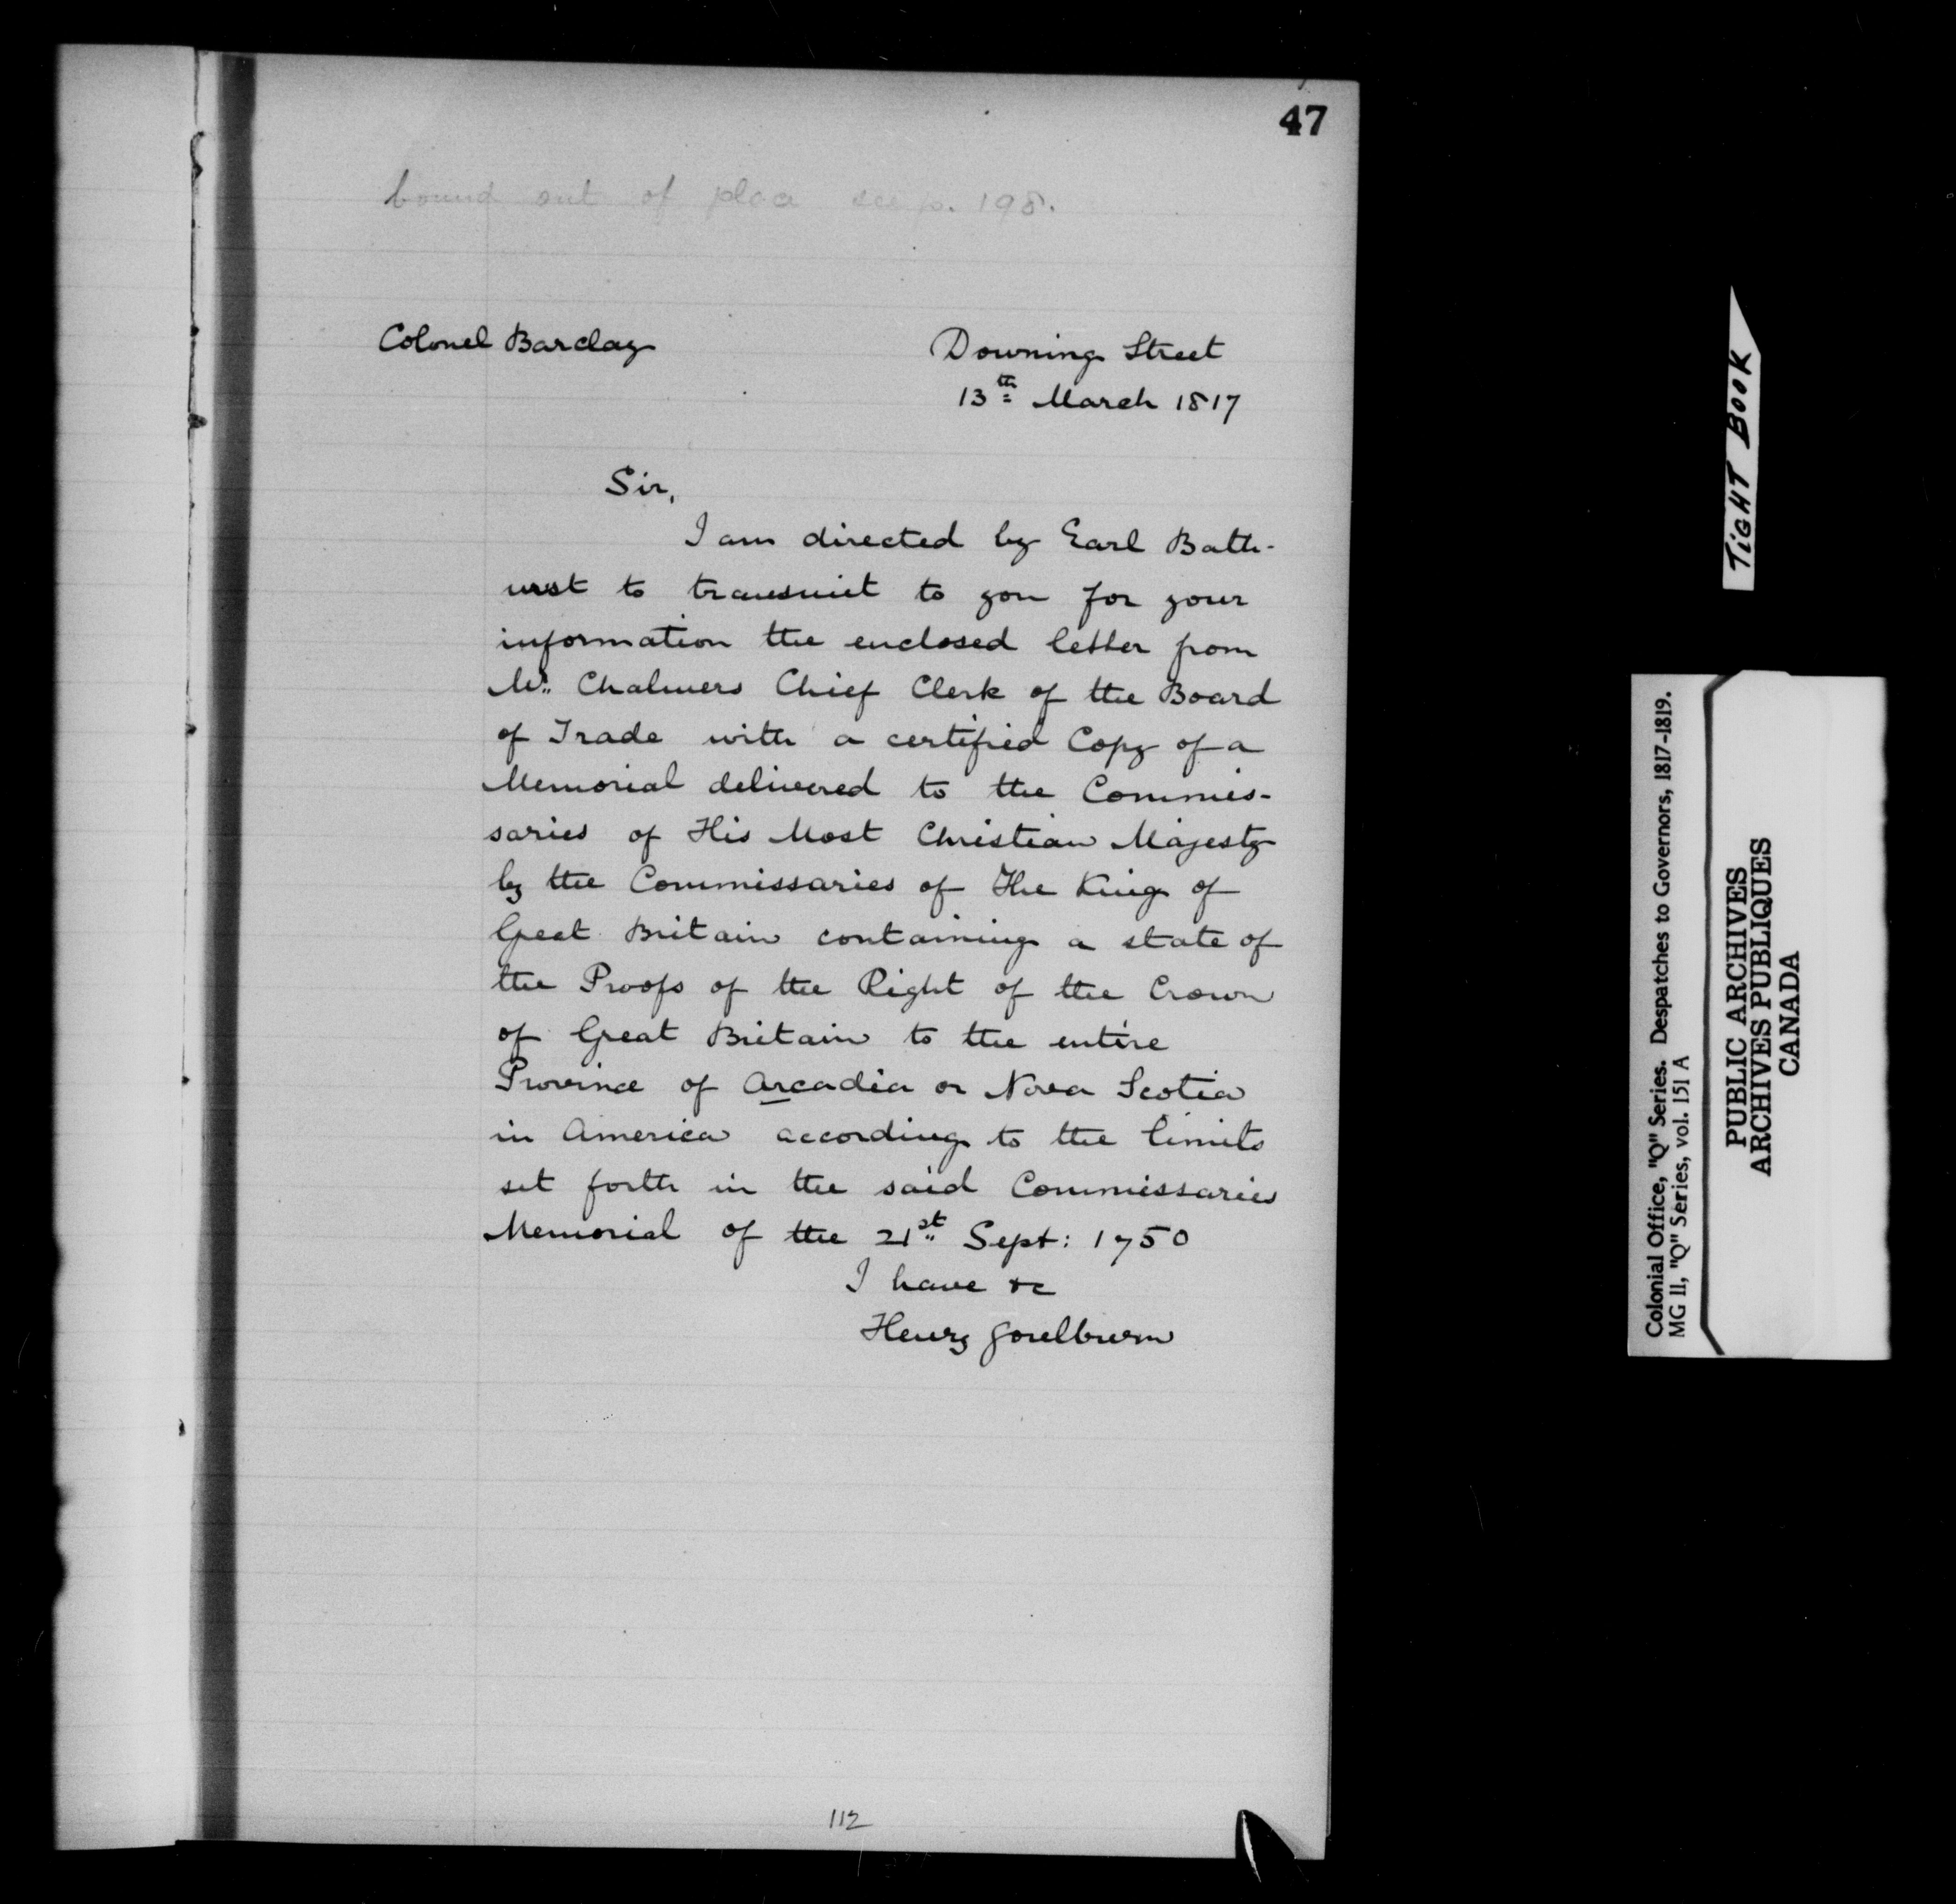 47
bound out of place see p. 198.
Colonel Barclay
Downing Street
13th March 1817
Sir,
I am directed by Earl Bath-
urst to transmit to you for your
information the enclosed letter from
Mr. Chalmers Chief Clerk of the Board
of Trade with a certified Copy of a
Memorial delivered to the Commis-
saries of His Most Christian Majesty
by the Commissaries of The King of
Great Britain containing a state of
the Proofs of the Right of the Crown
of Great Britain to the entire
Province of Arcadia or Nova Scotia
in America according to the limits
set forth in the said Commissaries
Memorial of the 21st Sept: 1750
I have &c
Henry Goulburn
112
TIGHT BOOK
Colonial Office, "Q" Series. Despatches to Governors, 1817-1819.
MG 11, "Q" Series, vol. 151 A
PUBLIC ARCHIVES
ARCHIVES PUBLIQUES
CANADA